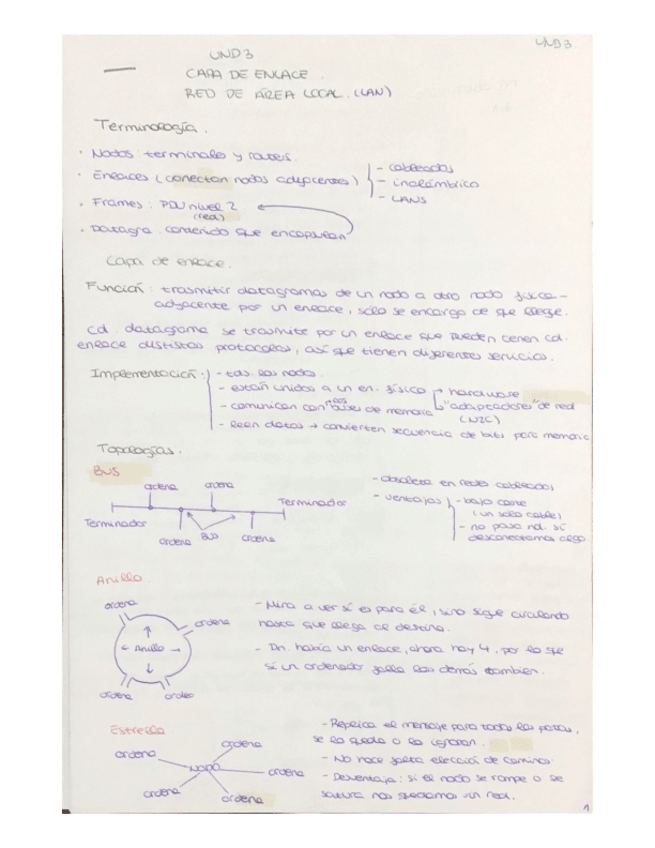 UND 3
UND 3
CAPA DE ENLACE.
RED DE ÁREA LOCAL. (LAN)
Terminología.
· Nodos: terminales y routers.
· Enlaces (conectan nodos adyacentes)
- cableados
- inalámbrico
- LANS
· Frames: PDU nivel 2
(red)
· Datagra. contenido que encapsulan
Capa de enlace.
Función: trasmitir datagramas de un nodo a otro nodo física-
adyacente por un enlace, sólo se encarga de que llegue.
cd. datagrama se trasmite por un enlace que pueden tener cd.
enlace distintos protocolos, así que tienen diferentes servicios.
Implementación:
- tds. los nodos.
- están unidos a un en. físico
hardware
- comunican con los buses de memoria
"adaptadores" de red
(NIC)
- leen datos → convierten secuencia de bits para memoria
Topologías.
BUS
ordena
ordena
Terminador
Terminador
ordena
BUS
ordena
- obsoleta en redes cableadas
- ventajas
- bajo coste
(un solo cable)
- no pasa nd. si
desconectamos algo
Anillo
ordena
ordena
← Anillo →
ordena
orden
- Mira a ver si es para él, sino sigue circulando
hasta que llega al destino.
- Dn. había un enlace, ahora hay 4, por lo que
si un ordenador falla los demás también.
Estrella
ordena
ordena
NODO
ordena
ordena
ordena
- Replica el mensaje para todos los
se lo queda o lo ignoran.
- No hace falta elección de camino
- Desventaja: si el nodo se rompe o se
satura nos quedamos sin red.
1